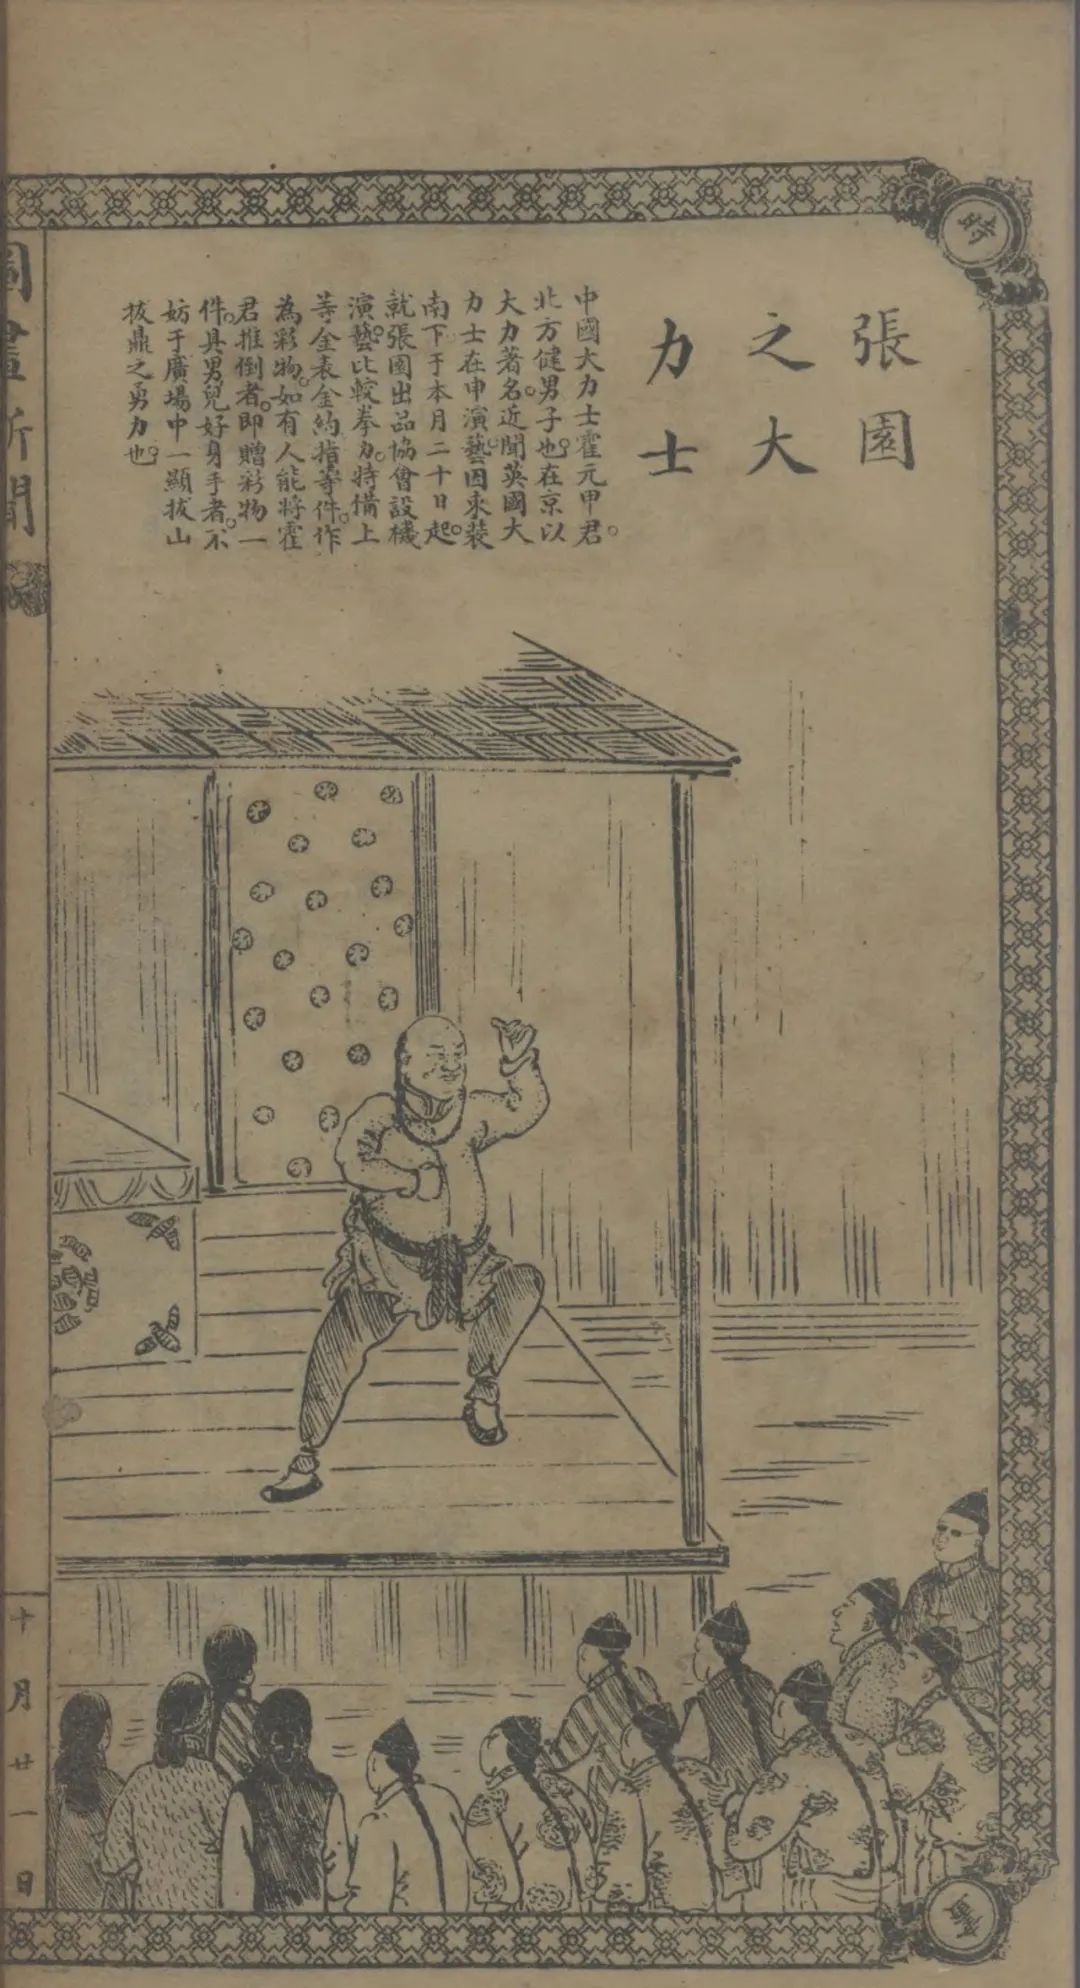 張園
之大
力士
中國大力士霍元甲君。
北方健男子也。在京以
大力著名。近聞英國大
力士在申演藝。因束裝
南下。于本月二十日起。
就張園出品協會設機
演藝。比較拳力。特備上
等金表金約指等件。作
為彩物。如有人能將霍
君推倒者。即贈彩物一
件。具男兒好身手者。不
妨于廣場中一顯拔山
拔鼎之勇力也。
圖畫新聞
十月廿一日